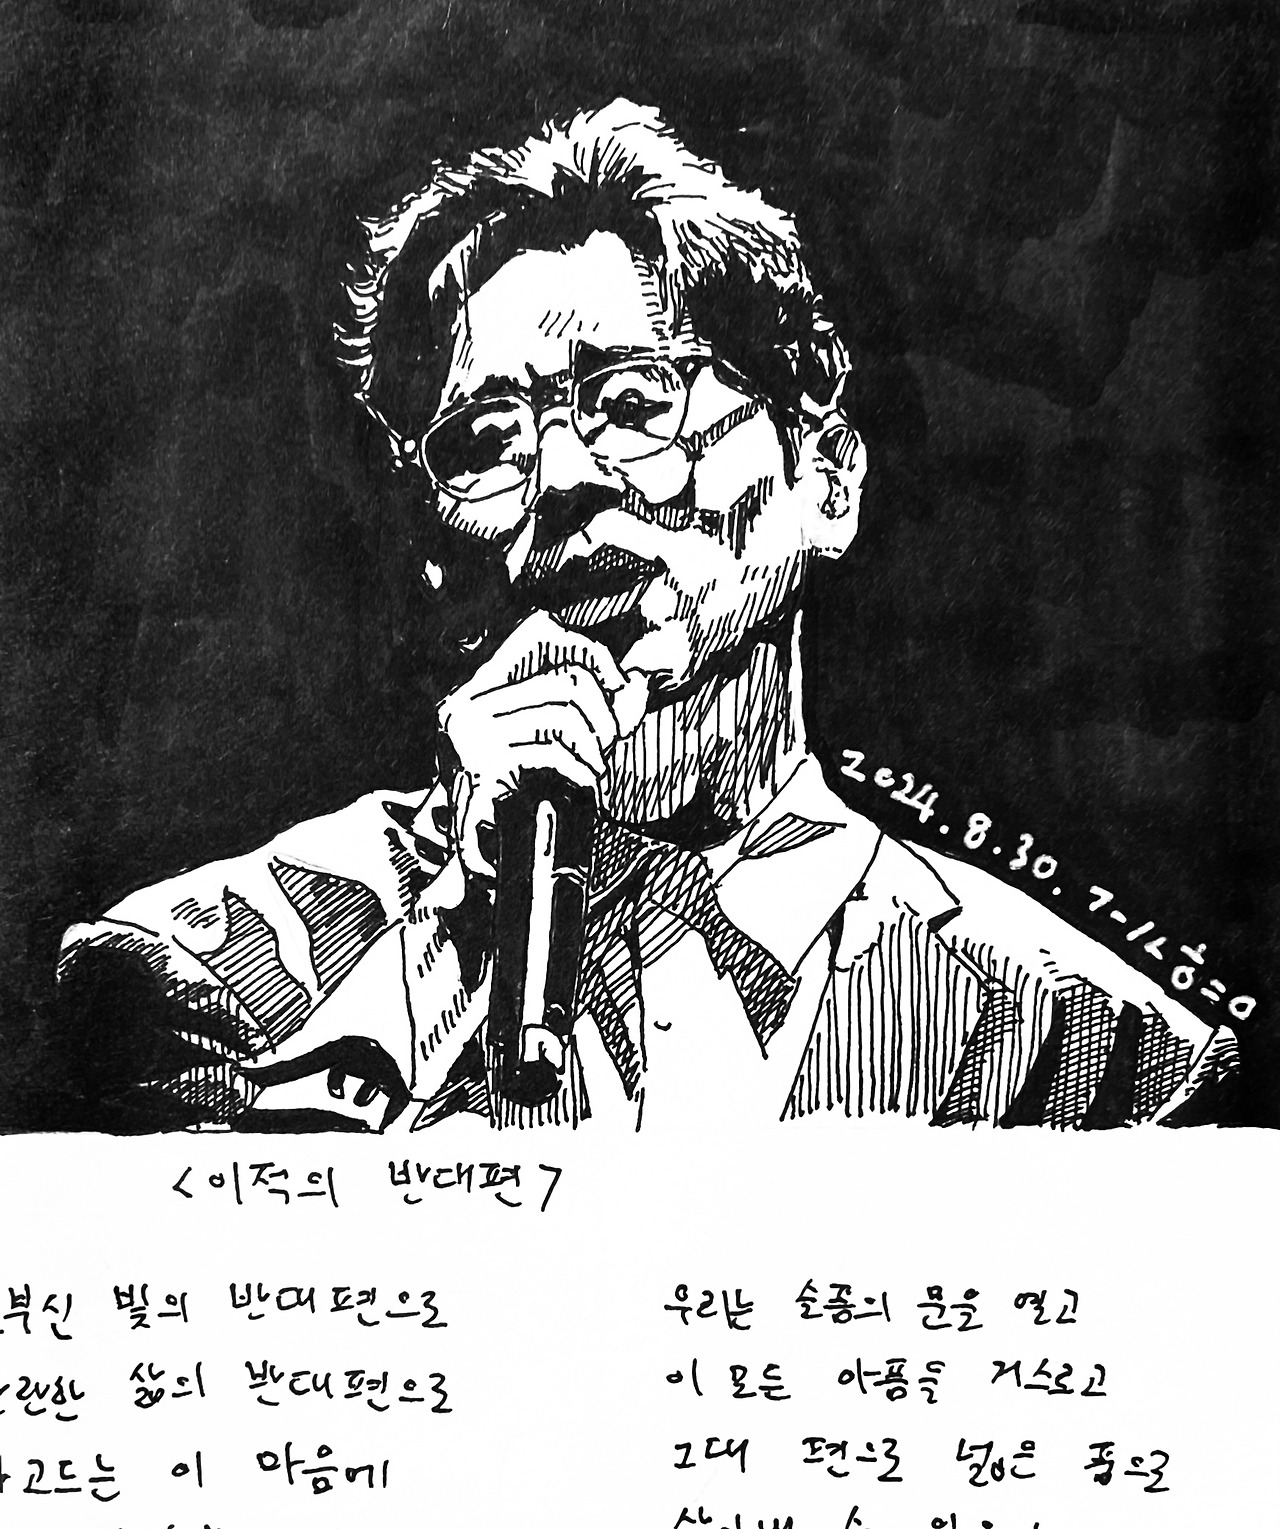 2024.8.30.
<이적의 반대편>
부신 빛의 반대편으로
란한 삶의 반대편으로
고드는 이 마음에
우리는 슬픔의 문을 열고
이 모든 아픔들 거스르고
그대 편으로 넓은 품으로